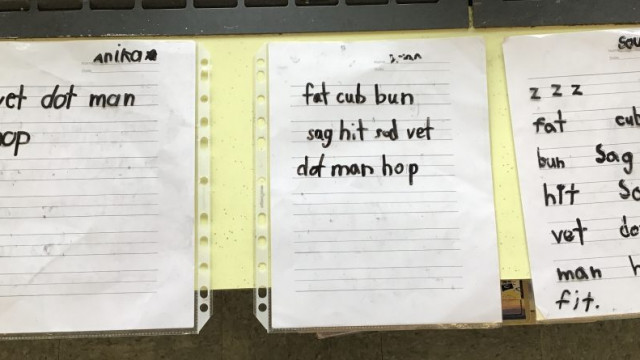 Anika
vet dot man
hop
fat cub bun
sag hit sod vet
dot man hop
z z z
fat cub
bun Sag
hit So
vet do
man h
fit.